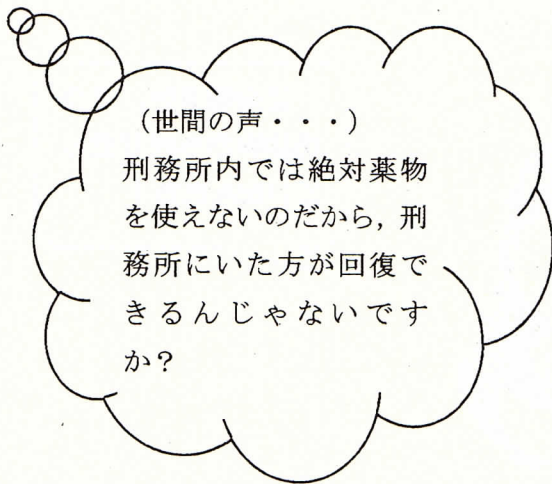 (世間の声・・・)
刑務所内では絶対薬物
を使えないのだから，刑
務所にいた方が回復で
きるんじゃないです
か？